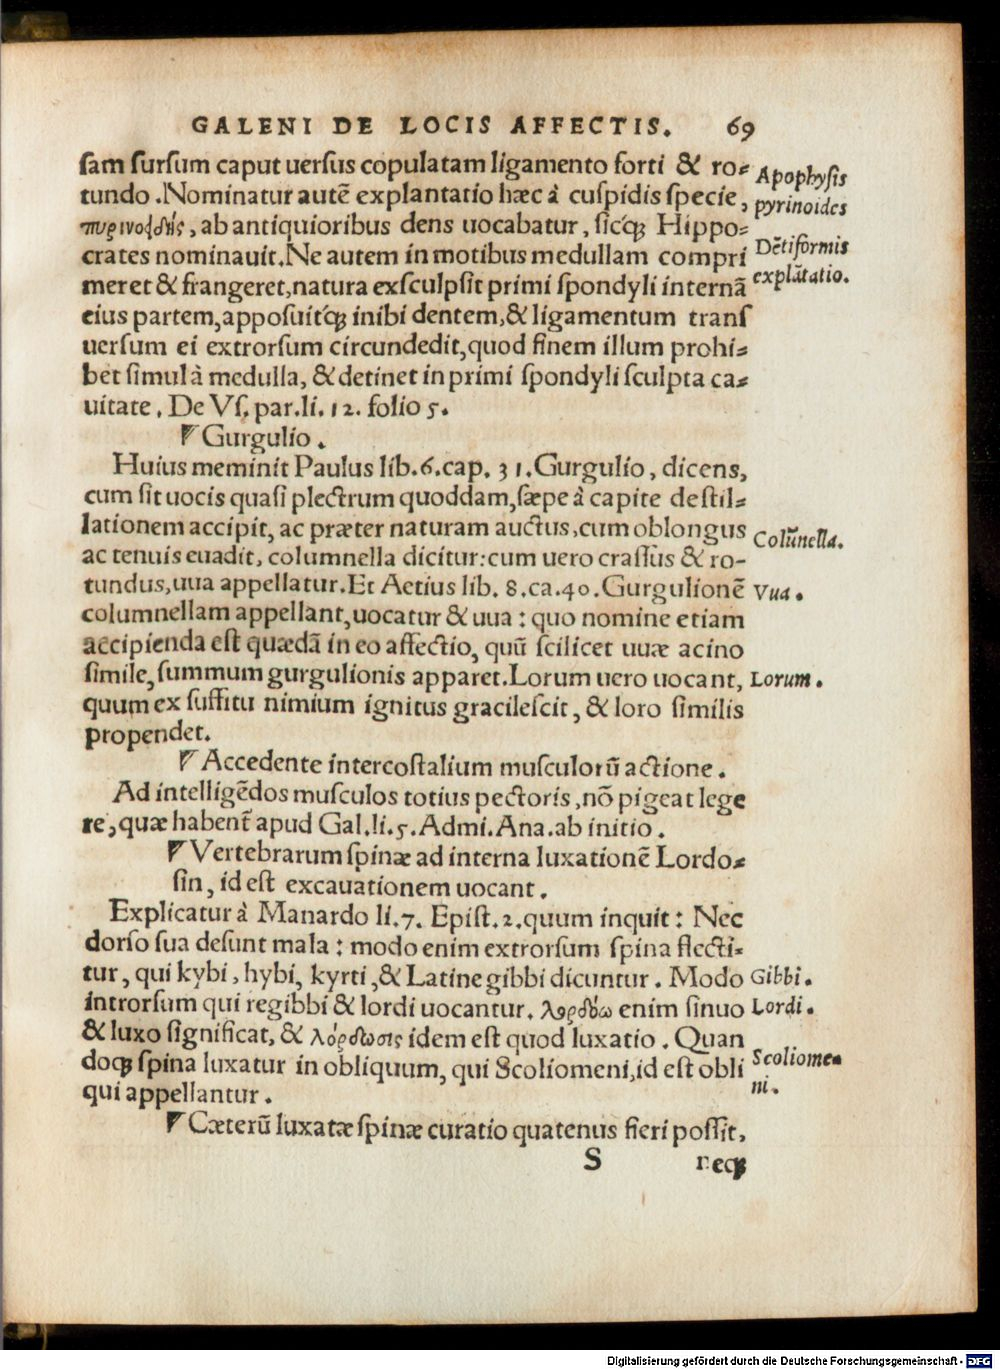 GALENI DE LOCIS AFFECTIS. 69
sam sursum caput uersus copulatam ligamento forti & ro-
tundo. Nominatur autē explantatio hæc à cuspidis specie,
πυρινοειδής, ab antiquioribus dens uocabatur, sicq́ꝫ Hippo-
crates nominauit. Ne autem in motibus medullam compri
meret & frangeret, natura exsculpsit primi spondyli internā
eius partem, apposuitq́ꝫ inibi dentem, & ligamentum trans
uersum ei extrorsum circundedit, quod finem illum prohi-
bet simul à medulla, & detinet in primi spondyli sculpta ca-
uitate. De Vs. par. li. 12. folio 5.
Apophysis
pyrinoides
Dētiformis
explātatio.
Gurgulio.
Huius meminit Paulus lib. 6. cap. 31. Gurgulio, dicens,
cum sit uocis quasi plectrum quoddam, sæpe à capite destil-
lationem accipit, ac præter naturam auctus, cum oblongus
ac tenuis euadit, columnella dicitur: cum uero crassus & ro-
tundus, uua appellatur. Et Aetius lib. 8. ca. 40. Gurgulionē
columnellam appellant, uocatur & uua: quo nomine etiam
accipienda est quædā in eo affectio, quū scilicet uuæ acino
simile, summum gurgulionis apparet. Lorum uero uocant,
quum ex suffitu nimium ignitus gracilescit, & loro similis
propendet.
Colūnella.
Vua.
Lorum.
Accedente intercostalium musculorū actione.
Ad intelligēdos musculos totius pectoris, nō pigeat lege
re, quæ habent̃ apud Gal. li. 5. Admi. Ana. ab initio.
Vertebrarum spinæ ad interna luxationē Lordo-
sin, id est excauationem uocant.
Explicatur à Manardo li. 7. Epist. 2. quum inquit: Nec
dorso sua desunt mala: modo enim extrorsum spina flecti-
tur, qui kybi, hybi, kyrti, & Latine gibbi dicuntur. Modo
introrsum qui regibbi & lordi uocantur. λορδόω enim sinuo
& luxo significat, & λόρδωσις idem est quod luxatio. Quan
doqꝫ spina luxatur in obliquum, qui Scoliomeni, id est obli
qui appellantur.
Gibbi.
Lordi.
Scoliome-
ni.
Cæterū luxatæ spinæ curatio quatenus fieri possit,
S neqꝫ
Digitalisierung gefördert durch die Deutsche Forschungsgemeinschaft - DFG